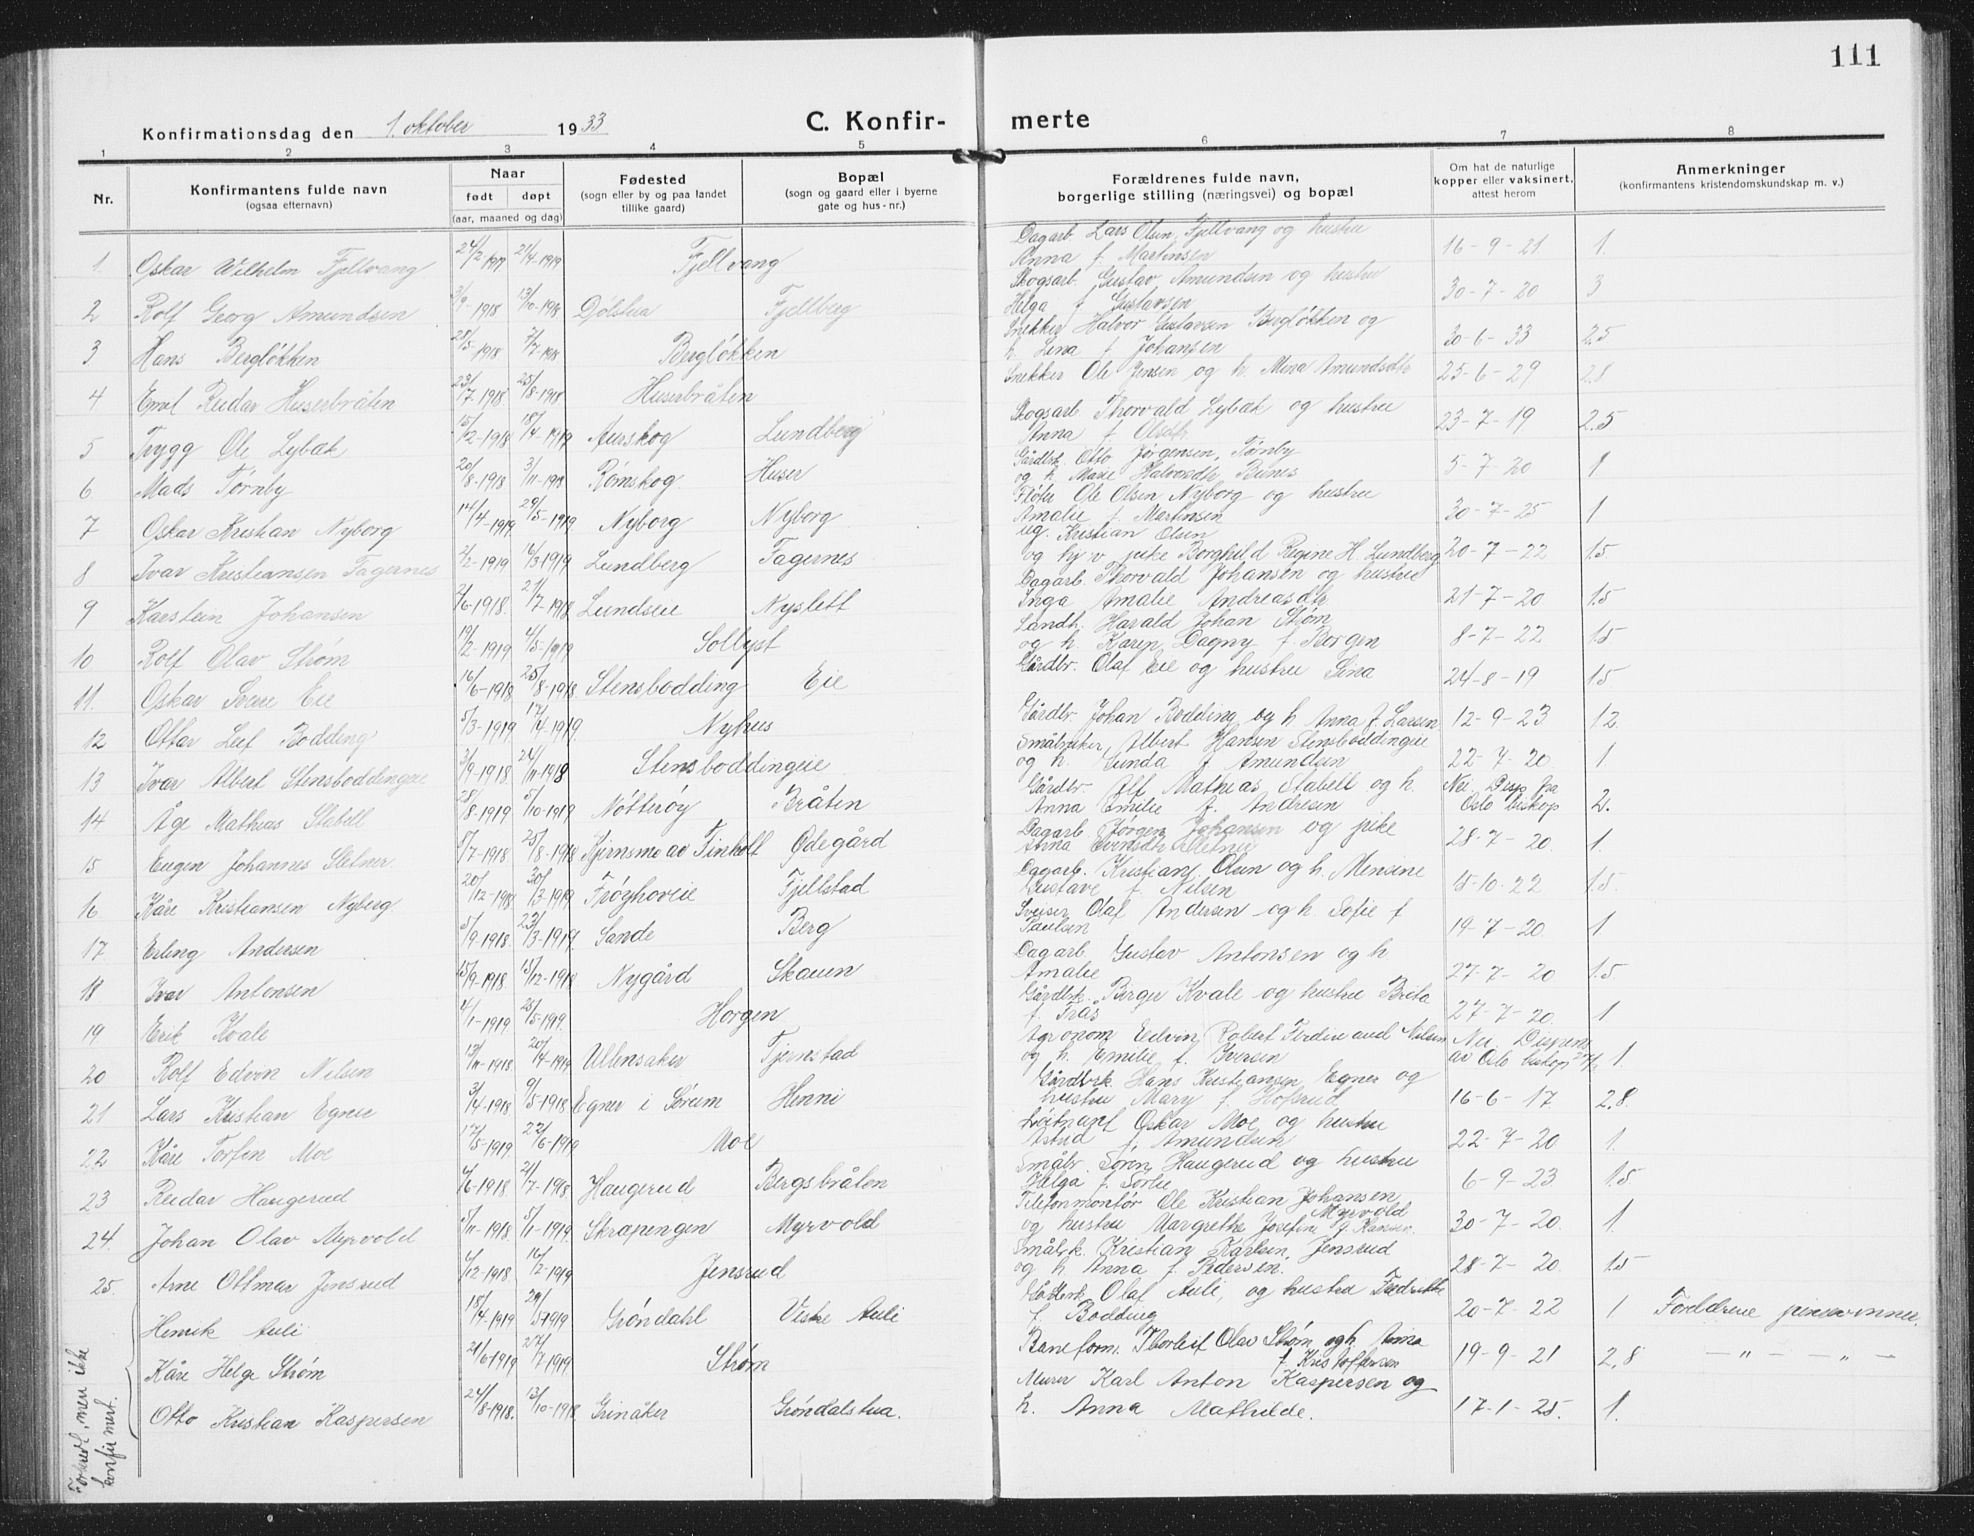 111
Konfirmationsdag den 1. oktober 1933 C. Konfir- merte
1 2 3 4 5 6 7 8
Nr. Konfirmantens fulde navn (ogsaa efternavn) Naar født døpt (aar, maaned og dag) Fødested (sogn eller by og paa landet tillike gaard) Bopæl (sogn og gaard eller i byerne gate og hus-nr.) Forældrenes fulde navn, borgerlige stilling (næringsvei) og bopæl Om hat de naturlige kopper eller vaksinert, attest herom Anmerkninger (konfirmantens kristendomskundskap m. v.)
1. Oskar Wilhelm Fjellvang 24/2-1919 21/4-1919 Fjellvang Dagarb. Lars Olsen Fjellvang og hustru Anna f. Martinsen 16-9-21 1.
2 Rolf Georg Amundsen 3/9-1918 13/10-1918 Dølstua Fjellberg Skogsarb. Gustav Amundsen og hustru Helga f Gustavsen 30-7-20 3
3 Hans Bergløkken 28/5-1918 7/7-1918 Bergløkken Snekker Halvor Gustavsen Bergløkken og h. Lina f. Johansen 30-6-33 2.5
4 Emil Reidar Huserbråten 23/7-1918 25/8-1918 Huserbråten Snekker Ole Jensen og h. Mina Amundsdtr 25-6-29 2.8
5 Trygg Ole Lybæk 15/12-1918 18/4-1919 Aurskog Lundberg Skogsarb. Thorvald Lybæk og hustru Anna f. Olsdtr 23-7-19 2.5
6 Mads Tørnby 20/8-1918 3/11-1918 Rømskog Huser Gårdbr. Otto Jørgensen, Tørnby og h. Marie Halvorsdtr Bunes 5-7-20 1
7 Oskar Kristian Nyborg 14/4-1919 29/5-1919 Nyborg Nyborg Fløter Ole Olsen Nyborg og hustru Amalie f. Martinsen 30-7-25 1
8 Ivar Kristiansen Fagernes 2/2-1919 16/3-1919 Lundberg Fagernes ug. Kristian Olsen og hjv pike Borghild Regine H Lundberg 20-7-22 1.5
9 Karstein Johansen 2/6-1918. 21/7-1918 Lundseie Nyslett Dagarb. Thorvald Johansen og hustru Inga Amalie Andreasdtr 21-7-20 1.5
10 Rolf Olav Strøm 19/2-1919 4/5-1919 Sollyst Landh. Harald Johan Strøm og h. Karen Dagny f Borgen 8-7-22 1.5
11. Oskar Sverre Eie 16/6-1918 25/8-1918. Stensbodding Eie Gårdbr. Olaf Eie og hustru Lina 24-8-19 1.5
12 Ottar Leif Bodding 5/3-1919 17/4-1919. Nyhus Gårdbr. Johan Bodding og h. Anna f. Larsen 12-9-23 1.2.
13 Ivar Albert Stensboddingeie 3/9-1918. 24/11-1918 Stensboddingeie Småbruker, Albert Hansen Stensboddingeie og h. Gunda f Amundsen 22-7-20. 1
14 Åge Mathias Stabell 28/8-1919 5/10-1919 Nøtterøy Bråten Gårdbr. Alf Mathias Stabell og h. Anna Emilie f. Andresen Nei Disp fra Oslo biskop 2.
15 Eugen Johannes Sletner 5/7-1918 25/8-1918 Hjernsmo av Finholt Ødegård Dagarb. Jørgen Johansen og pike Anna Evensdtr Sletner 28-7-20. 1.
16 Kåre Kristiansen Nyberg 20/12-1918 30/3-1919 Frøyhoveie Fjellstad Dagarb. Kristian Olsen og h. Mensine Gustave f. Nilsen 15-10-22 1.5.
17 Erling Andersen 5/9-1918. 23/3-1919 Sande Berg Sveiser Olaf Andersen og h. Sofie f Paulsen 19-7-20. 1
18 Ivar Antonsen 15/9-1918. 15/12-1918 Nygård Skauen Dagarb. Gustav Antonsen og h Amalie 27-7-20 1.5
19 Erik Kvale 4/1-1919 25/5-1919. Horgen Gårdbrk. Birger Kvale og hustru Brita f. Trås 27-7-20. 1
20 Rolf Edvin Nilsen 13/11-1918 20/4-1919 Ullensaker Fjernstad Agronom Edvin Robert Ferdinand Nilsen og h. Emilie f. Iversen Nei. Dispens av Oslo biskop 1.
21 Lars Kristian Egner 3/4-1918 9/5-1918 Egner i Sørum Henni Gårdbrk Hans Kristiansen Egner og hustru Mary f. Hofsrud 16-6-17 2.8.
22 Kåre Torfin Moe 17/5-1919 22/6-1919 Moe Løitnant Oskar Moe og hustru Astrid f. Amundsen 22-7-20 1.
23 Reidar Haugerud 4/6-1918 21/7-1918 Haugerud Bergsbråten Småbr. Søren Haugerud og hustru Helga f. Sørlie 6-9-23 1.5
24. Johan Olav Myrvold 5/11-1918. 5/1-1919. Skrapengen Myrvold Telefonmontør Ole Kristian Johansen Myrvold og hustru Margrethe Josefine f. Hansen 30-7-20. 1.
25. Arne Ottmar Jensrud 4/12-1918 16/2-1919 Jensrud Småbrk. Kristian Karlsen, Jensrud og h Anna f. Pedersen. 28-7-20. 1.5
Henrik Auli 18/4-1919 29/5-1919 Grøndahl Vestre Auli Gårdbrk Olaf Auli, og hustru Fredrikke f. Bodding 20-7-22 1 Foreldrene pinsevenner.
Kåre Helge Strøm 21/6-1919 27/7-1919 Strøm Baneform. Thorleif Olav Strøm og h. Anna f. Kristoffersen 19-9-21 2,8 — „ — — „ —
Otto Kristian Kaspersen 24/8-1918. 13/10-1918 Grinåker Grøndalstua. Murer Karl Anton Kaspersen og h. Anna Mathilde. 17-1-25. 1.
Forhørt, men ikke
konfirmert.